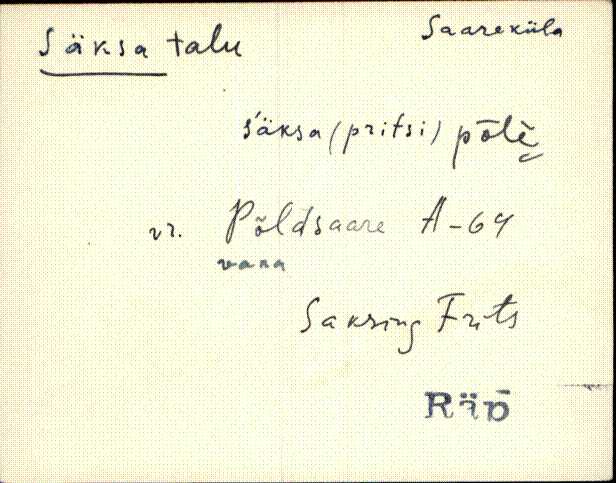 Säksa talu
Saareküla
s'äksa (pritsi) põlè
vr. Põldsaare A-64
vana
Sakring Frits
Räp